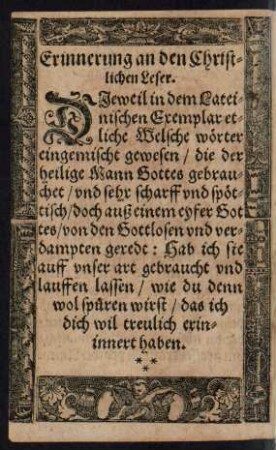 Erinnerung an den Christ-
lichen Leser.
DJeweil in dem Latei-
nischen Exemplar et-
liche Welsche wörter
eingemischt gewesen / die der
heilige Mann Gottes gebrau-
chet / vnd sehr scharff vnd spöt-
tisch / doch auß einem eyfer Got
tes / von den Gottlosen vnd ver-
dampten geredt: Hab ich sie
auff vnser art gebraucht vnd
lauffen lassen / wie du denn
wol spüren wirst / das ich
dich wil treulich erin-
nert haben.